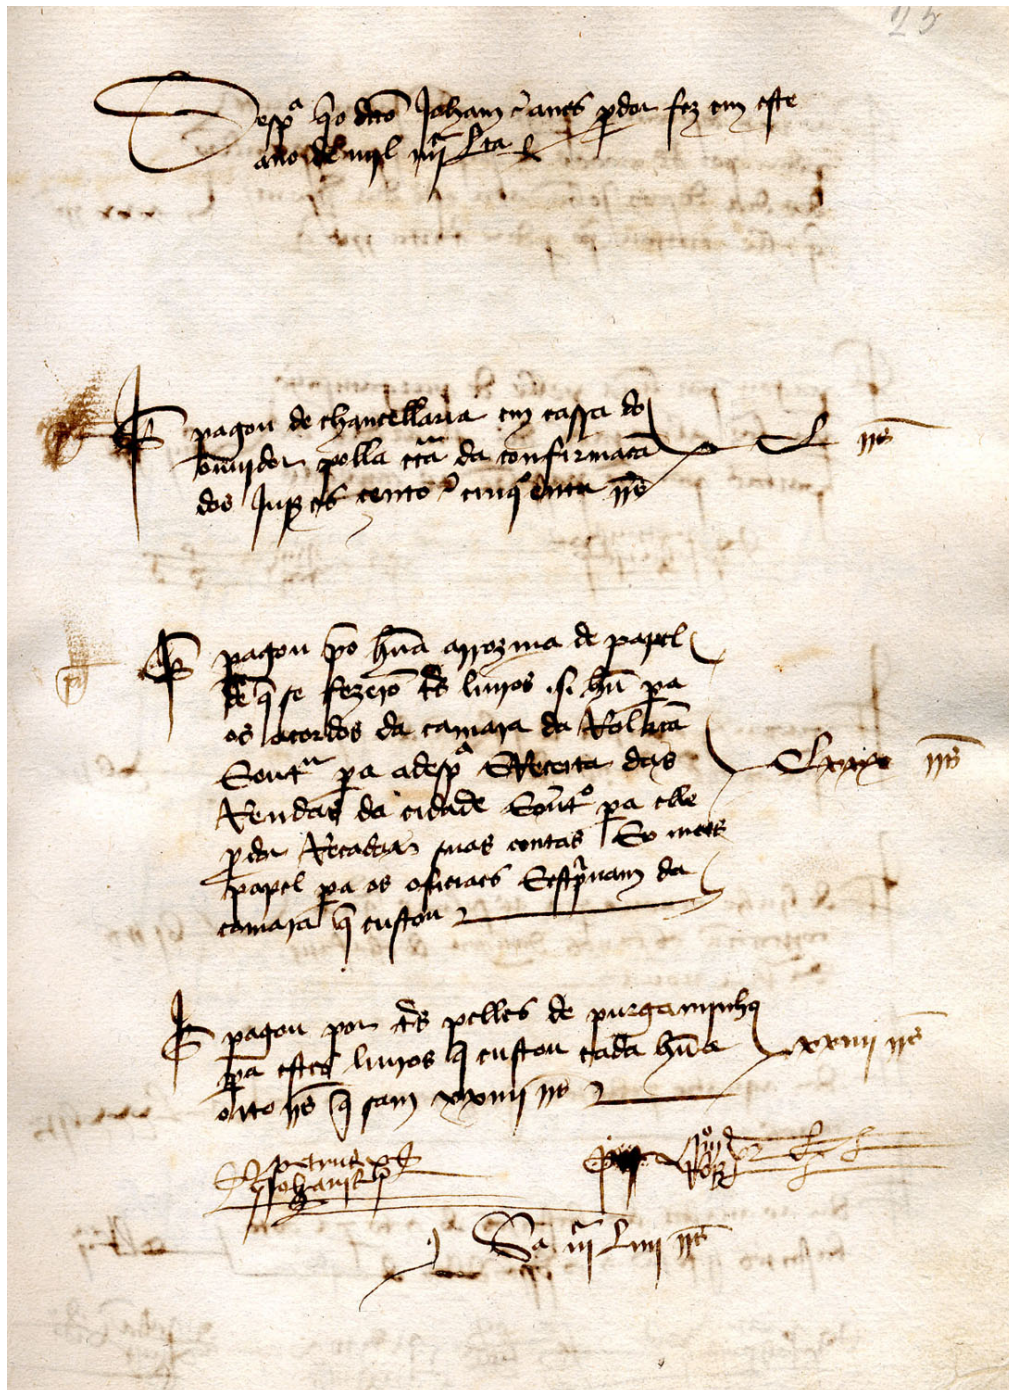 25
Despª q̃ o dcõ Joham eanes pdor fez em este
ano de mjl iiijᶜ Lta
pagou de chancellaria em cassa do
ouujdor polla crta da confirmaçã
dos Juyzes cento e cinquenta rrs̃ CL rrs̃
pagou por hũa arrozma de papel
de q̃ se fezerõ tres liuros .s. hũ pa
os acordos da camara da Rollaçã
Eoutro pa adespª E Receita das
Rendas da cidade E outº pa elle
pdor Recadar suas contas E o mais
papel pa os oficiaes E escpuam da
camara q̃ custou CLxxx rrs̃
pagou por tres pelles de purgamjnho
pa estes liuros q̃ custou cada hũa
oito rrs̃ q̃ sam xxiiij rrs̃ xxiiij rrs̃
petrus
Johanis
Sª iijᶜ Liiij rrs̃